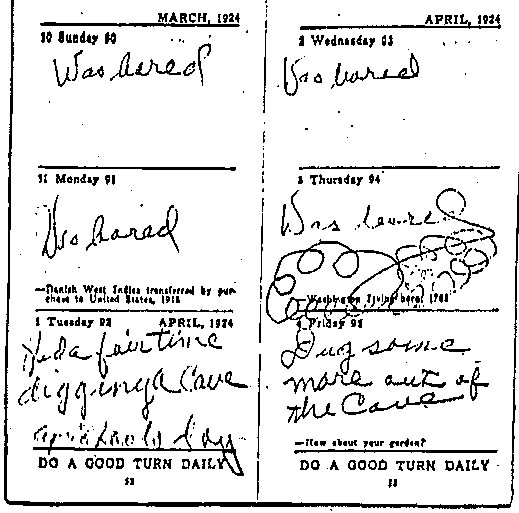 MARCH, 1924
30 Sunday 90
Was bored
31 Monday 91
Was bored
—Danish West Indies transferred by pur-
chase to United States, 1916
1 Tuesday 92 APRIL, 1924
Had a fair time
digging a Cave
april fools day
DO A GOOD TURN DAILY
52
APRIL, 1924
2 Wednesday 93
Was bored
3 Thursday 94
Was bored
—Washington Irving born, 1783
4 Friday 95
Dug some
more out of
the Cave
—How about your garden?
DO A GOOD TURN DAILY
53